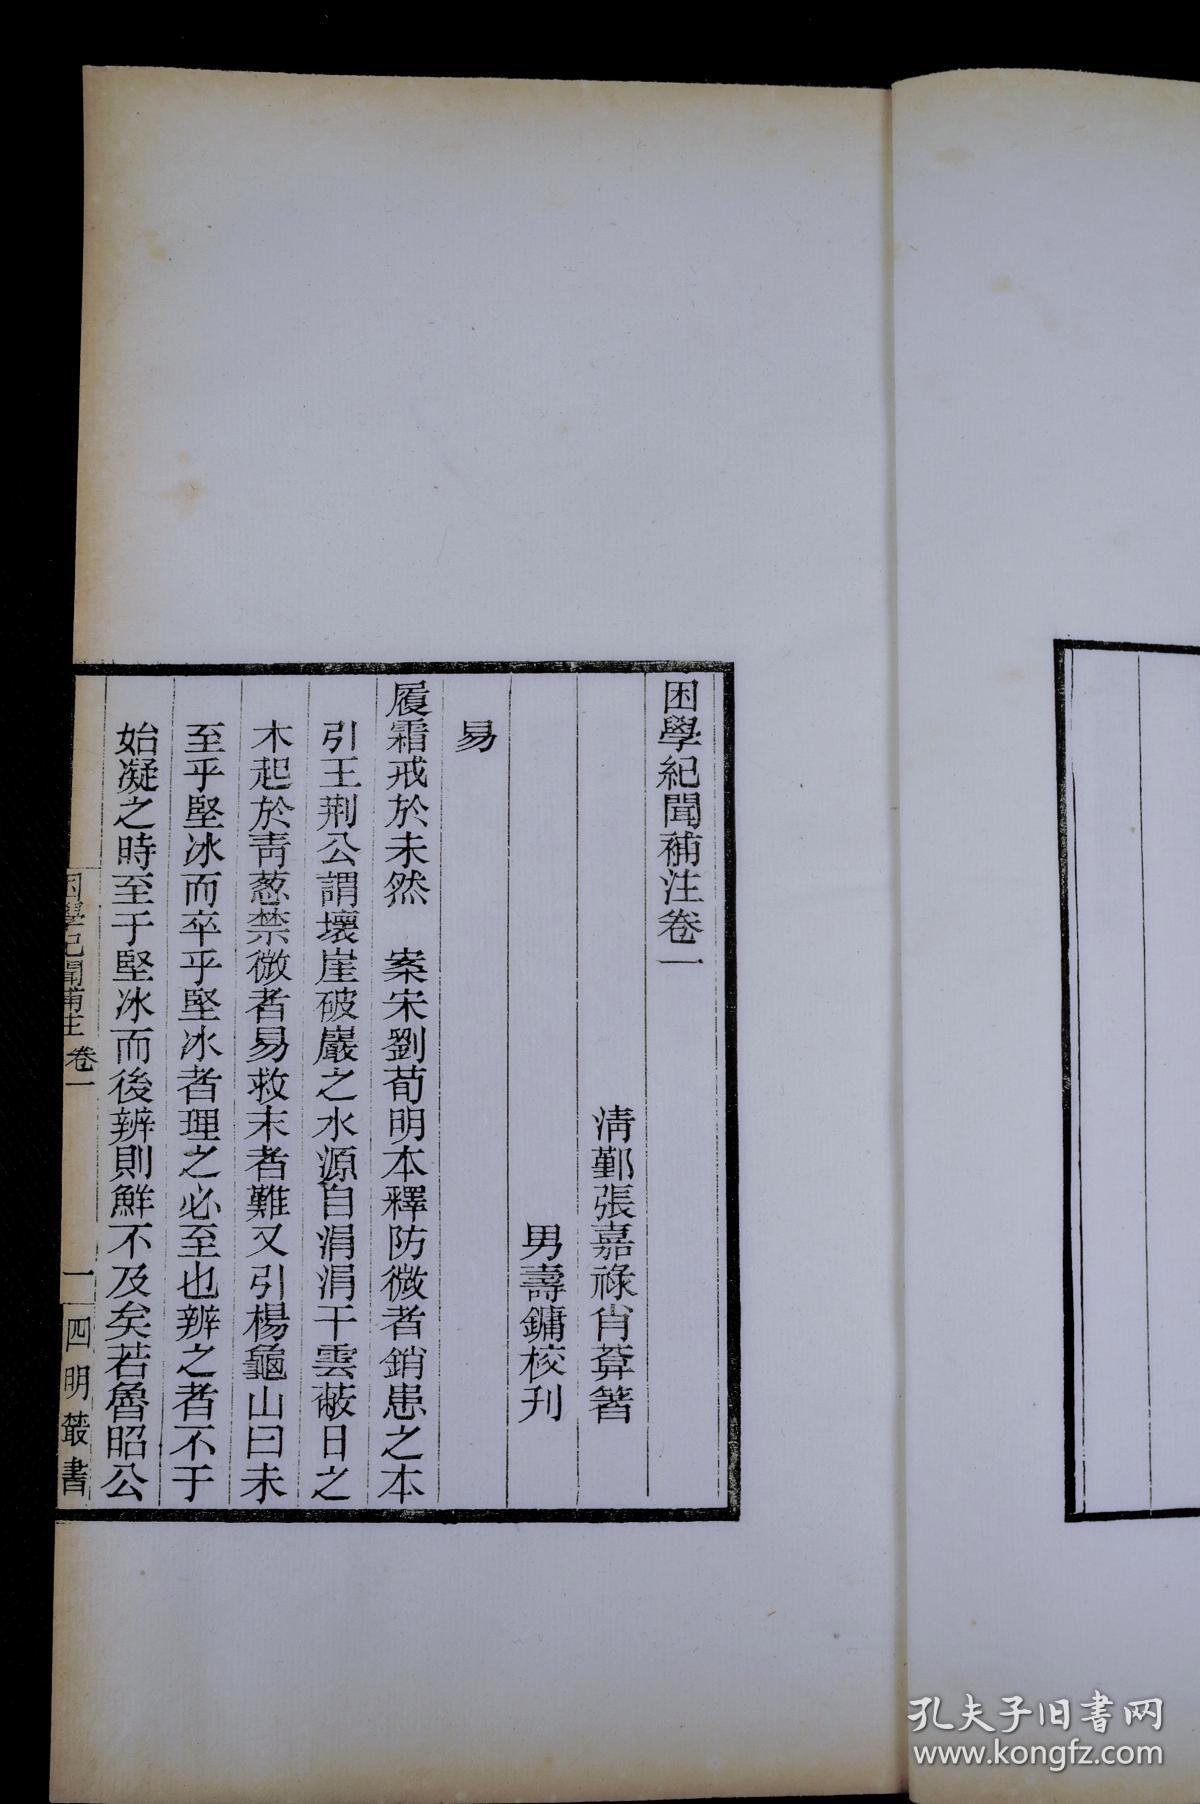 困學紀聞補注卷一
清鄞張嘉祿肖葊箸
男壽鏞校刊
易
履霜戒於未然　案宋劉荀明本釋防微者銷患之本
引王荆公謂壞崖破巖之水源自涓涓干雲蔽日之
木起於靑葱禁微者易救末者難又引楊龜山曰未
至乎堅冰而卒乎堅冰者理之必至也辨之者不于
始凝之時至于堅冰而後辨則鮮不及矣若魯昭公
困學紀聞補注　卷一　一　四明叢書
孔夫子旧书网
www.kongfz.com